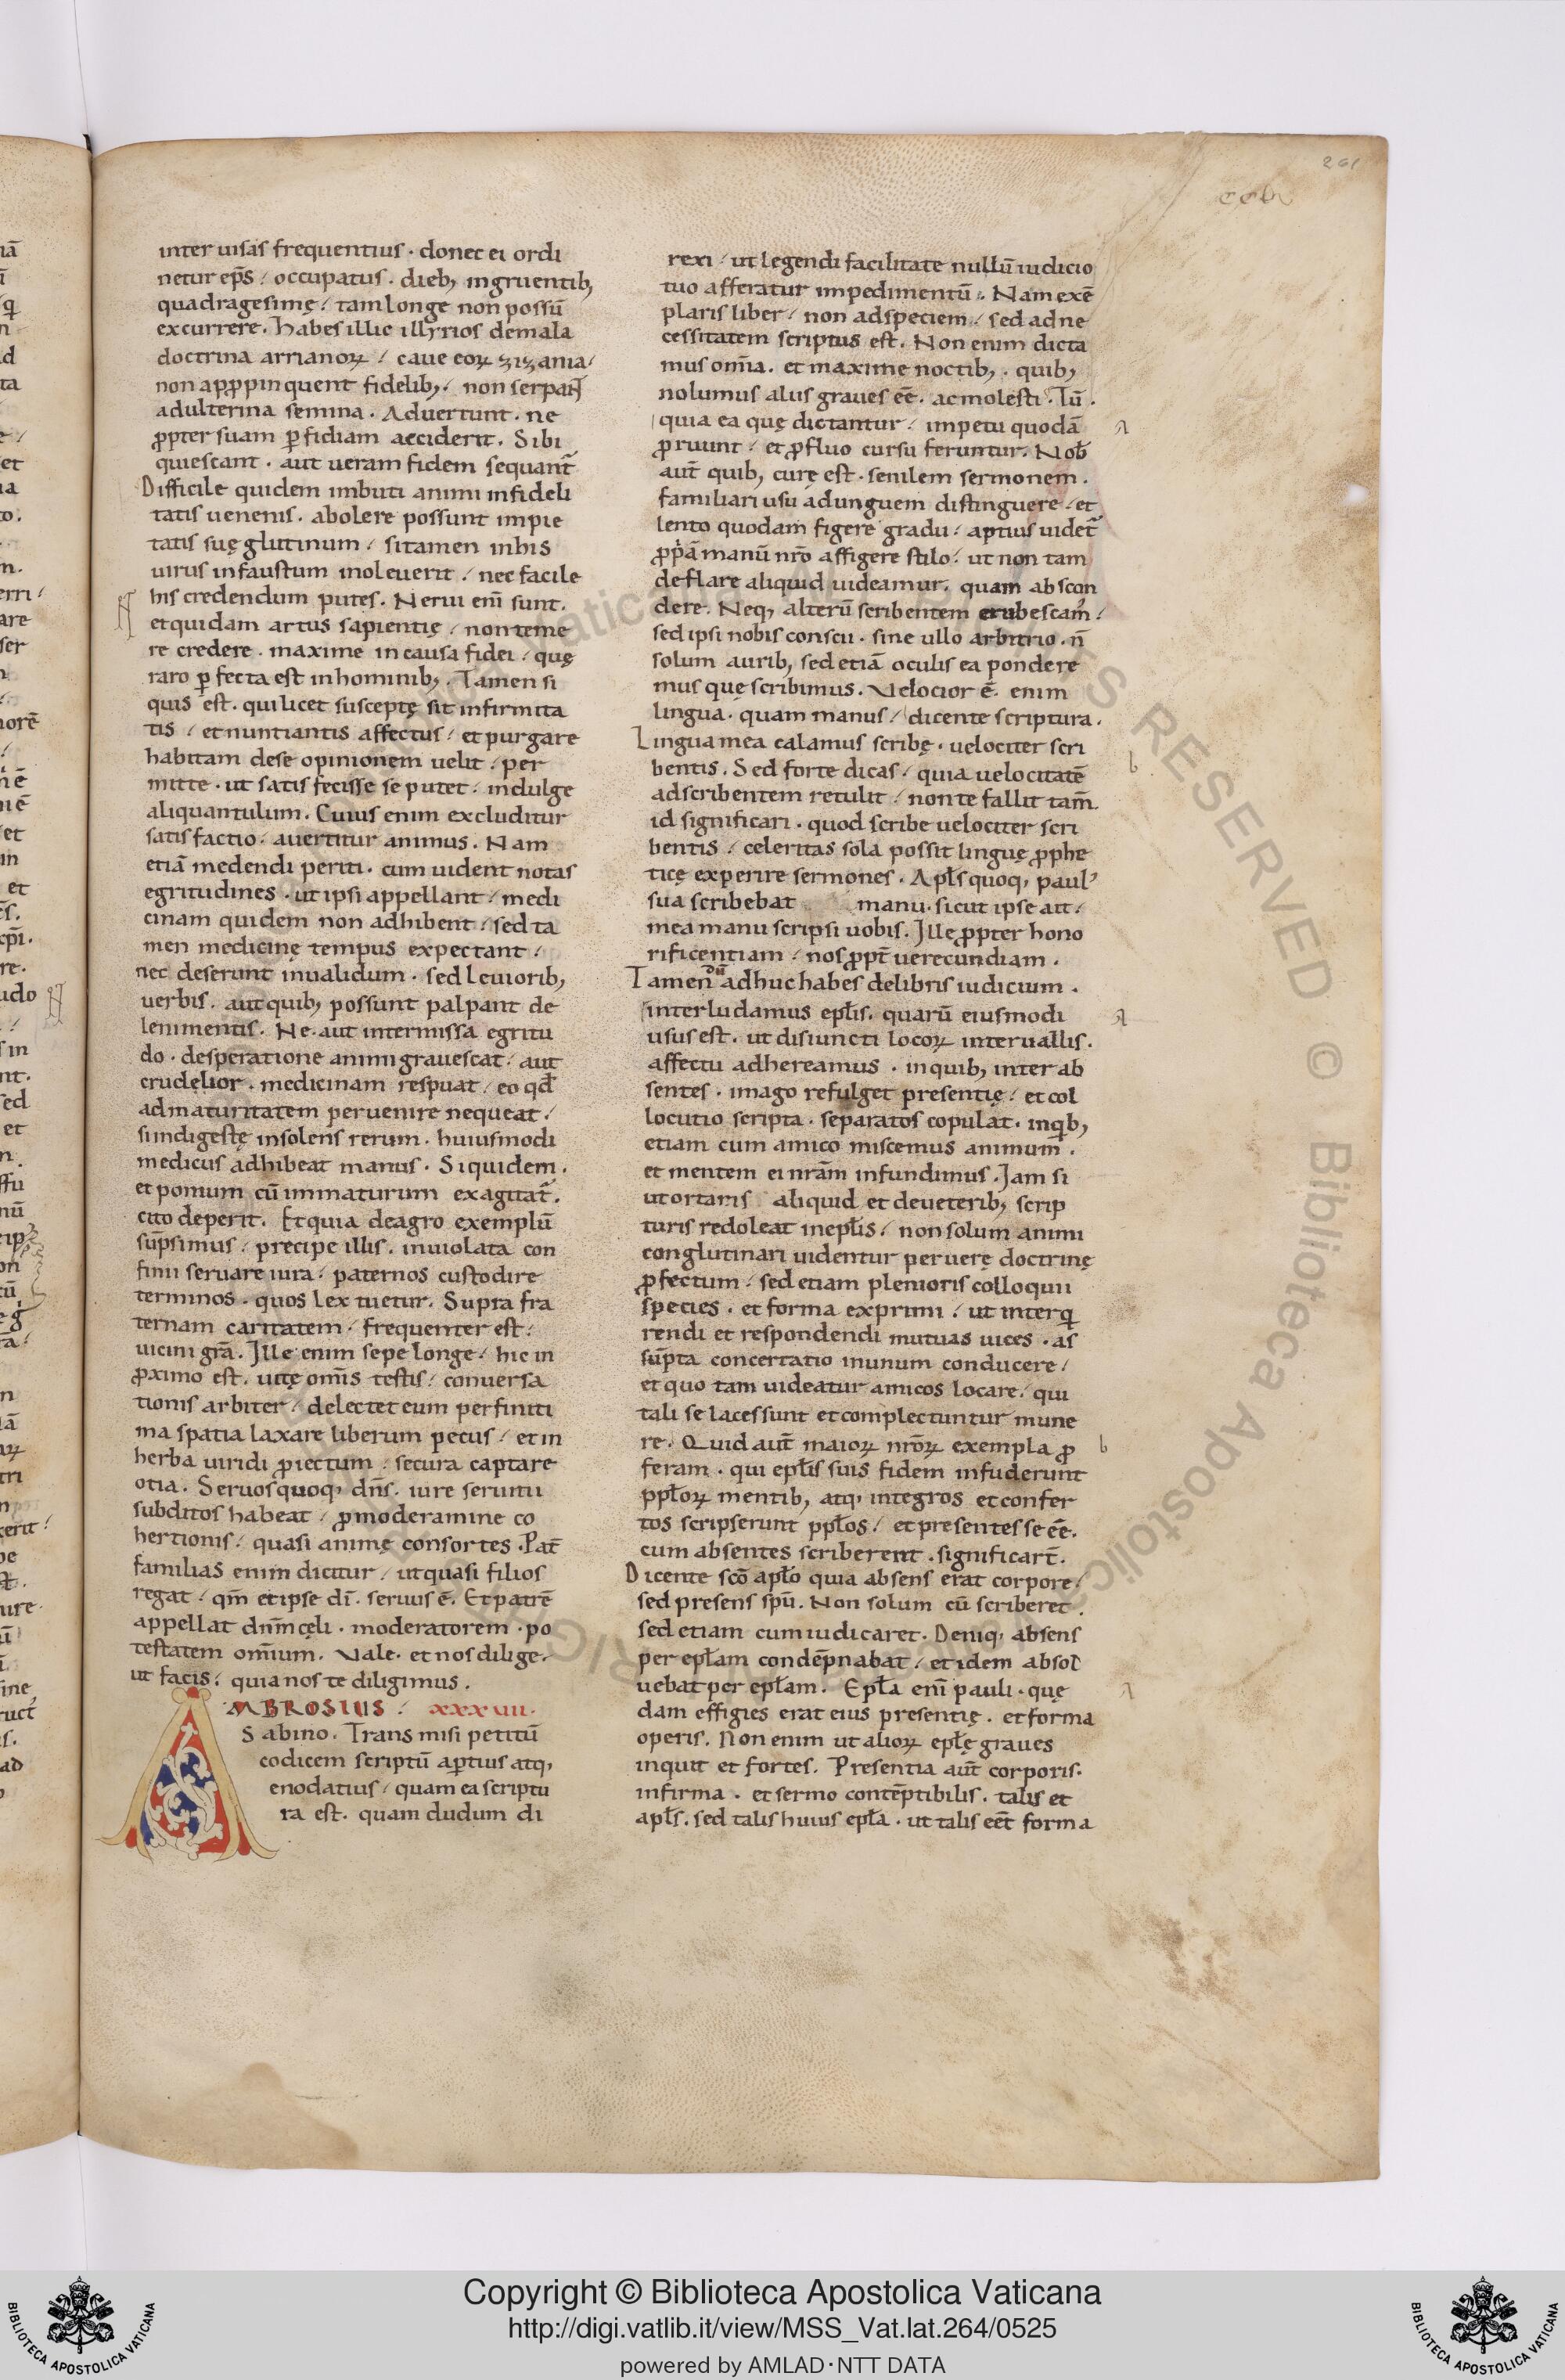 261
inter uisas frequentius · donec ei ordi
netur ep̅s / occupatus · dieb; ingruentib;
quadragesimę / tam longe non possū
excurrere. Habes illic illyrios de mala
doctrina arrianoꝝ / caue eoꝝ zizania /
non aꝓpinquent fidelib; / non serpant
adulterina semina. Aduertunt · ne
ꝓpter suam ꝑfidiam acciderit. Sibi
quiescant · aut ueram fidem sequant᷑
Difficile quidem imbuti animi infideli
tatis uenenis · abolere possunt impie
tatis suę glutinum / si tamen in his
uirus infaustum inoleuerit / nec facile
his credendum putes. Nerui eni̅ sunt.
et quidam artus sapientię / non teme
re credere · maxime in causa fidei / quę
raro ꝑfecta est in hominib;. Tamen si
quis est · qui licet susceptę sit infirmita
tis / et nuntiantis affectus / et purgare
habitam de se opinionem uelit / per
mitte · ut satis fecisse se putet / indulge
aliquantulum. Cuius enim excluditur
satisfactio · auertitur animus. Nam
etiā medendi periti · cum uident notas
egritudines · ut ipsi appellant / medi
cinam quidem non adhibent / sed ta
men medicinę tempus expectant /
nec deserunt inualidum · sed leuiorib;
uerbis · aut quib; possunt palpant de
lenimentis. Ne aut intermissa egritu
do · desperatione animi grauescat / aut
crudelior · medicinam respuat / eo qđ
ad maturitatem peruenire nequeat /
si indigestę insolens rerum · huiusmodi
medicus adhibeat manus. Siquidem ·
et pomum cū immaturum exagitat᷑ ·
cito deperit. Et quia de agro exemplū
sūpsimus / precipe illis · inuiolata con
finii seruare iura / paternos custodire
terminos · quos lex tuetur. Supra fra
ternam caritatem · frequenter est /
uicini gr̅a. Ille enim sepe longe / hic in
ꝓximo est · uitę om̅is testis / conuersa
tionis arbiter / delectet eum per finiti
ma spatia laxare liberum pecus / et in
herba uiridi ꝓiectum / secura captare
otia. Seruos quoq; dn̅s · iure seruitii
subditos habeat / ꝓ moderamine co
hertionis / quasi animę consortes. Pat̅
familias enim dicitur / ut quasi filios
regat / qm̅ et ipse di̅ · seruus ē. Et patrē
appellat dn̅m cęli · moderatorem · po
testatem om̅ium. Vale · et nos dilige ·
ut facis / quia nos te diligimus.
AMBROSIUS / xxxvii·
Sabino. Transmisi petitū
codicem scriptū aꝑtius atq;
enodatius / quam ea scriptu
ra est · quam dudum di
rexi / ut legendi facilitate nullū iudicio
tuo afferatur impedimentū. Nam exē
plaris liber / non ad speciem / sed ad ne
cessitatem scriptus est. Non enim dicta
mus om̅ia · et maxime noctib; · quib;
nolumus aliis graues eē · ac molesti. Tū ·
quia ea quę dictantur / impetu quodā
ꝓruunt / et ꝓfluo cursu feruntur. Nob̅
aut̅ quib; curę est · senilem sermonem ·
familiari usu ad unguem distinguere / et
lento quodam figere gradu / aptius uidet᷑
ꝓpiā manū nr̅o affigere stilo / ut non tam
deflare aliquid uideamur · quam abscon
dere. Neq; alterū scribentem erubescam᷒ /
sed ipsi nobis conscii · sine ullo arbitrio · n̅
solum aurib; sed etiā oculis ea pondere
mus quę scribimus. Velocior ē enim
lingua · quam manus / dicente scriptura ·
Lingua mea calamus scribę · uelociter scri
bentis. Sed forte dicas / quia uelocitatē
ad scribentem retulit / non te fallit tam̅
id significari · quod scribe uelociter scri
bentis / celeritas sola possit linguę ꝓphe
ticę experire sermones. Apl̅s quoq; paul᷒
sua scribebat manu · sicut ipse ait /
mea manu scripsi uobis. Ille ꝓpter hono
rificentiam / nos ꝓpt̅ uerecundiam ·
Tamen dū adhuc habes de libris iudicium ·
interludamus epl̅is · quarū eiusmodi
usus est · ut disiuncti locoꝝ interuallis ·
affectu adhereamus · in quib; inter ab
sentes · imago refulget presentię / et col
locutio scripta · separatos copulat · in qib;
etiam cum amico miscemus animum ·
et mentem ei nr̅am infundimus. Iam si
ut ortaris aliquid et de ueterib; scrip
turis redoleat in epl̅is / non solum animi
conglutinari uidentur per uerę doctrinę
ꝓfectum / sed etiam plenioris colloquii
species · et forma exprimi / ut interq
rendi et respondendi mutuas uices · as
sūpta concertatio in unum conducere /
et quo tam uideatur amicos locare / qui
tali se lacessunt et complectuntur mune
re. Quid aut̅ maioꝝ nr̅oꝝ exempla ꝓ
feram · qui epl̅is suis fidem infuderunt
ppl̅oꝝ mentib; atq; integros et confer
tos scripserunt ppl̅os / et presentes se eē ·
cum absentes scriberent · significart̅.
Dicente sc̅o apl̅o quia absens erat corpore /
sed presens spū. Non solum cū scriberet ·
sed etiam cum iudicaret. Deniq; absens
per epl̅am condēpnabat / et idem absol
uebat per epl̅am. Epl̅a eni̅ pauli · quę
dam effigies erat eius presentię · et forma
operis. Non enim ut alioꝝ epl̅ę graues
inquit et fortes. Presentia aut̅ corporis ·
infirma · et sermo contēptibilis · talis et
apl̅s · sed talis huius epl̅a · ut talis eēt forma
Copyright © Biblioteca Apostolica Vaticana
http://digi.vatlib.it/view/MSS_Vat.lat.264/0525
powered by AMLAD·NTT DATA
BIBLIOTECA APOSTOLICA VATICANA
BIBLIOTECA APOSTOLICA VATICANA